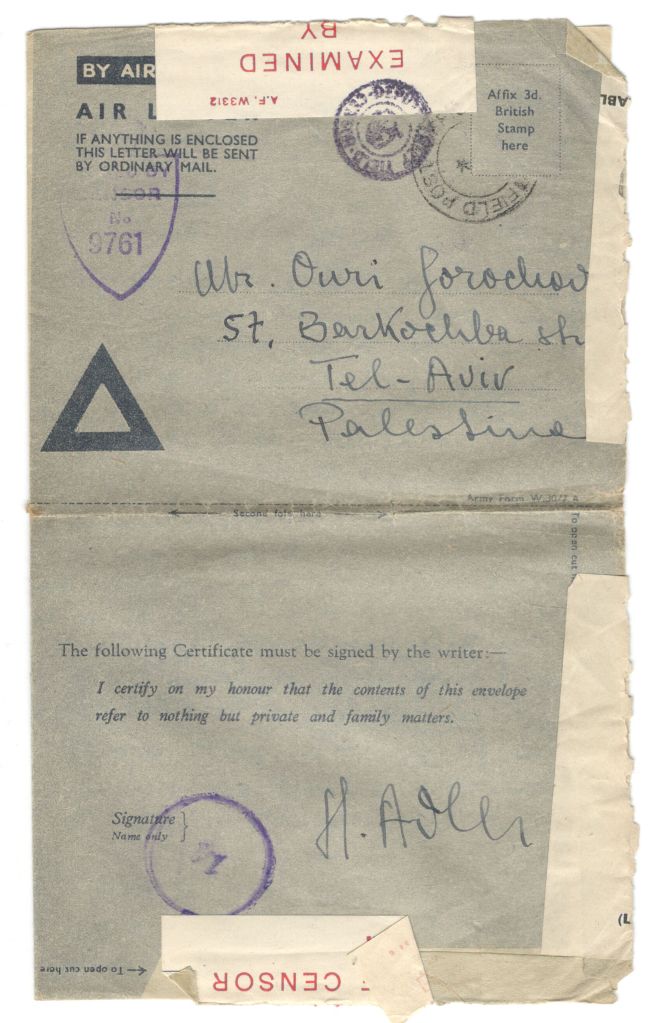 EXAMINED
BY
A.F. W3312
BY AIR
AIR
IF ANYTHING IS ENCLOSED
THIS LETTER WILL BE SENT
BY ORDINARY MAIL.
Affix 3d.
British
Stamp
here
FIELD POST
No
9761
Mr. Ouri Gorochov
57, Barkochba str
Tel-Aviv
Palestine
Army Form W.3077 A
Second fold here
To open cut
The following Certificate must be signed by the writer:—
I certify on my honour that the contents of this envelope
refer to nothing but private and family matters.
Signature
Name only
H. Adler
To open cut here
CENSOR